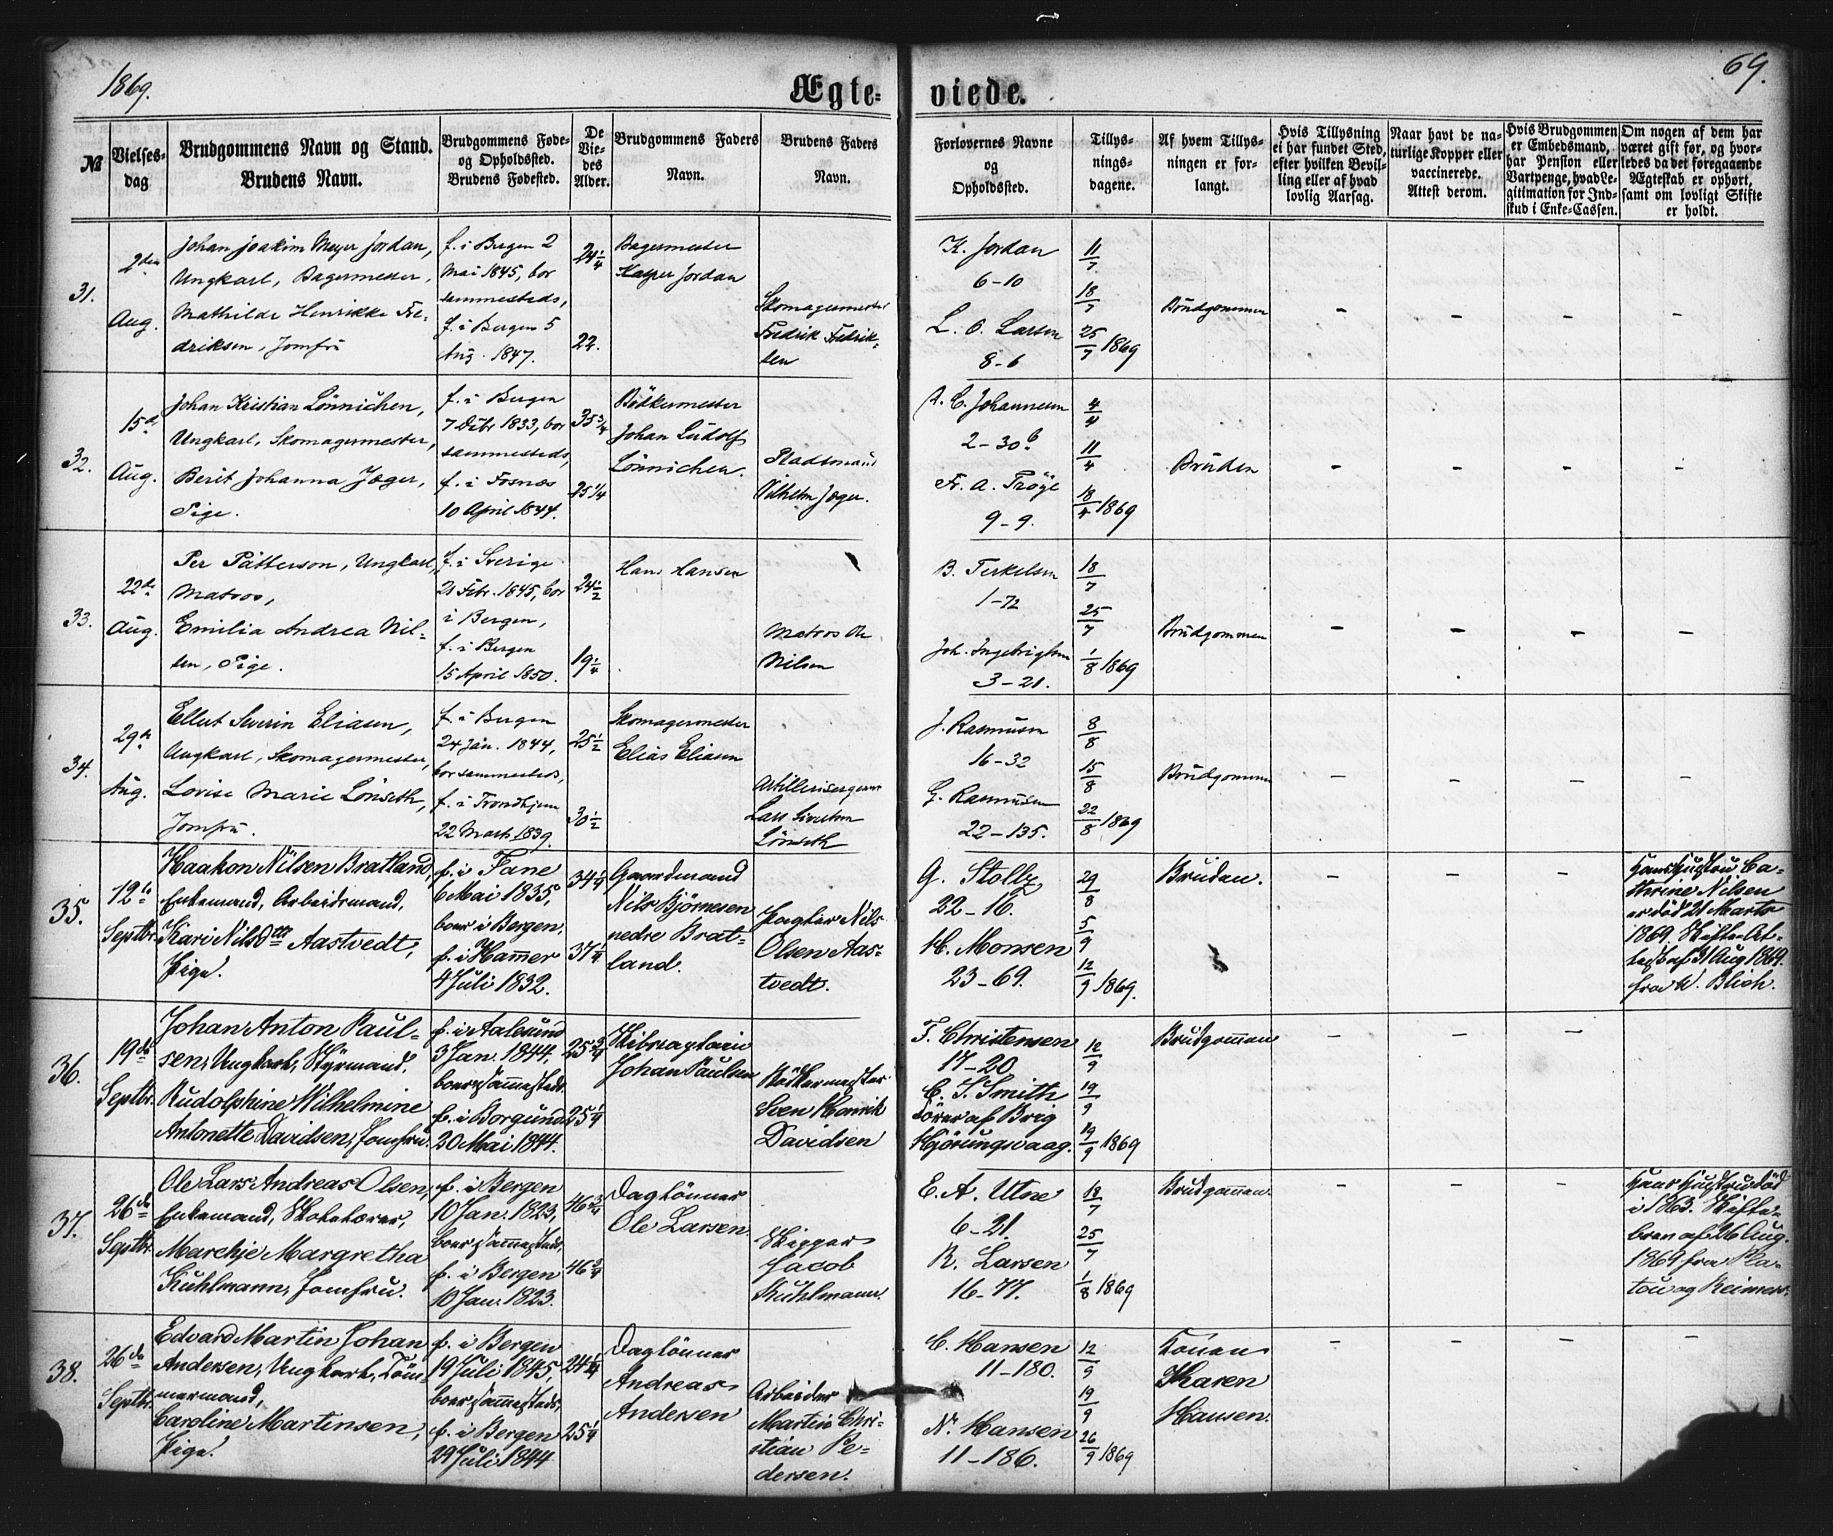 1869.
69.
Ægte-
viede.
№
Vielses-
dag
Brudgommens Navn og Stand.
Brudens Navn.
Brudgommens Føde-
og Opholdssted.
Brudens Fødested.
De
Vie-
des
Alder.
Brudgommens Faders
Navn.
Brudens Faders
Navn.
Forlovernes Navne
og
Opholdssted.
Tillys-
nings-
dagene.
Af hvem Tillys-
ningen er for-
langt.
Hvis Tillysning
ei har fundet Sted,
efter hvilken Bevil-
ling eller af hvad
lovlig Aarsag.
Naar havt de na-
turlige Kopper eller
vaccinerede.
Attest derom.
Hvis Brudgommen
er Embedsmand,
har Pension eller
Vartpenge, hvad Le-
gitimation for Ind-
skud i Enke-Cassen.
Om nogen af dem har
været gift før, og hvor-
ledes da det foregaaende
Ægteskab er ophørt,
samt om lovligt Skifte
er holdt.
31.
2den
Aug.
Johan Joakim Meyer Jordan,
Ungkarl, Bagermester,
Mathilde Henrikke Fre-
driksen, Jomfru
f. i Bergen 2
Mai 1845, bor
sammesteds,
f. i Bergen 5
Aug. 1847.
24 1/4
22.
Bagermester
Kasper Jordan
Skomagermester
Fredrik Fredrik-
sen
K. Jordan
6-10
L. O. Larsen
8-6
11/7
18/7
25/7 1869
Brudgommen
- - - -
32.
15de
Aug.
Johan Kristian Lönnichen,
Ungkarl, Skomagermester,
Berit Johanna Jæger,
Pige.
f. i Bergen
7 Dcbr 1833, bor
sammesteds,
f. i Fosnæs
10 April 1844.
35 3/4
25 1/4
Bödkermester
Johan Ludolf
Lönnichen.
Pladsmand
Vilhelm Jæger.
A. C. Johannesen
2-30 b
Fr. A. Tröye
9-9.
4/4
11/4
18/4 1869
Bruden
- - - -
33.
22de
Aug.
Per Pätterson, Ungkarl,
Matros,
Emilia Andrea Nil-
sen, Pige.
f. i Sverige
21 Febr. 1845, bor
i Bergen,
f. i Bergen
15 April 1850.
24 1/2
19 1/4
Hans Hansen
Matros Ole
Nilsen
B. Terkelsen
1-72
Joh. Ingebrigtsen
3-21.
18/7
25/7
1/8 1869
Brudgommen
- - - -
34.
29de
Aug.
Ellert Severin Eliasen,
Ungkarl, Skomagermester,
Lovise Marie Lönseth,
Jomfru.
f. i Bergen
24 Jan. 1844,
bor sammesteds,
f. i Trondhjem
22 Marts 1839.
25 1/2
30 1/2
Skomagermester
Elias Eliasen
Artillerisergeant
Lars Sivertsen
Lönseth
J. Rasmusen
16-32
G. Rasmusen
22-135.
8/8
15/8
22/8 1869
Brudgommen
- - - -
35.
12te
Septbr.
Haakon Nilsen Bratland,
Enkemand, Arbeidsmand,
Kari Nilsdtr Aastvedt,
Pige.
f. i Fane
6 Mai 1835,
boer i Bergen,
f. i Hammer
4 Juli 1832.
34 1/4
37 1/4
Gaardmand
Nils Björnesen
nedre Brat-
land.
Nils
Olsen Aas-
tvedt.
G. Stolbz
22-16.
H. Monsen
23-69.
29/8
5/9
12/9 1869.
Bruden.
- - -
Hans Hustru Ca-
thrine Nilsen
er död 21 Marts
1869. Skifte-At-
test af 31 Aug 1869
fra W. Blich.
36.
19de
Septbr.
Johan Anton Paul-
sen, Ungkarl, Styrmand,
Rudolphine Wilhelmine
Antonette Davidsen, Jomfru.
f. i Aalesund
3 Jan. 1844,
boer sammesteds.
f. i Borgund
20 Mai 1844.
25 3/4
25 1/4
Johan Paulsen
Bödkermester
Sven Henrik
Davidsen
T. Christensen
17-20
C. T. Smith
Förer af Brig
Hjörungvaag.
12/9
19/9
19/9 1869
Brudgommen
- - -
37.
26de
Septbr.
Ole Lars Andreas Olsen,
Enkemand,
Marchje Margretha
Kuhlmann, Jomfru.
f. i Bergen
10 Jan. 1823,
boer sammesteds,
f. i Bergen
10 Jan. 1823.
46 3/4
46 3/4
Daglönner
Ole Larsen.
Skipper
Jacob
Kuhlmann.
E. A. Utne
6-21.
R. Larsen
16-77.
18/7
25/7
1/8 1869
Brudgommen.
- - -
Hans Hustru död
i 1863. Skifte-
brev af 26 Aug.
1869 fra Pla-
tou og Reimers.
38.
26de
Septbr.
Edvard Martin Johan
Andersen, Ungkarl, Töm-
mermand,
Caroline Martinsen,
Pige.
f. i Bergen
19 Juli 1845,
boer sammesteds,
f. i Bergen
29 Juli 1844
24 1/4
25 1/4
Daglönner
Andreas
Andersen
Arbeider
Martin Chri-
stian Pe-
dersen.
C. Hansen
11-180.
N. Hansen
11-186.
12/9
19/9
26/9 1869
Konen
Karen
Hansen.
- - - -